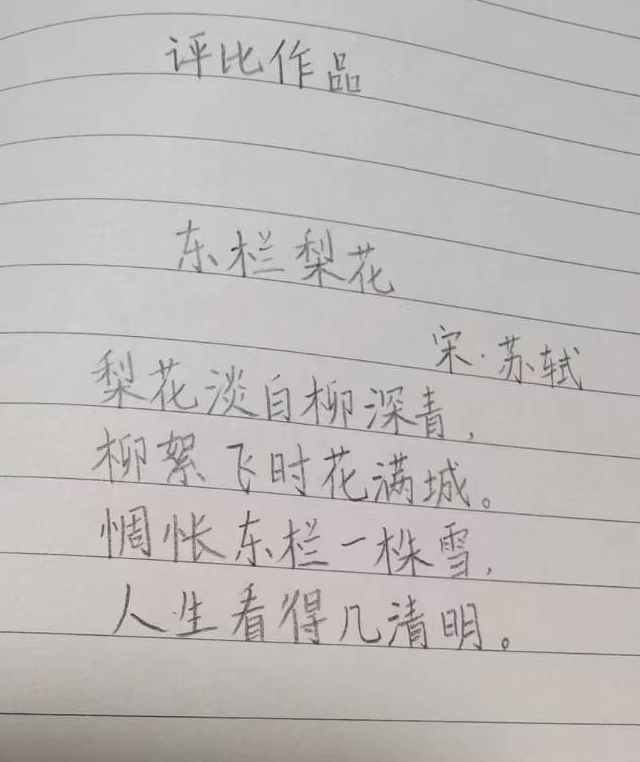 评比作品
东栏梨花
宋·苏轼
梨花淡白柳深青,
柳絮飞时花满城。
惆怅东栏一株雪,
人生看得几清明。